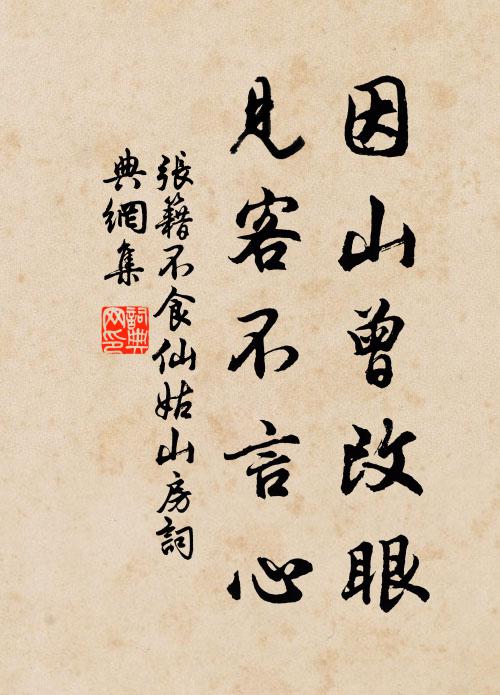 因山曾改眼
見客不言心
張籍不食仙姑山房詞
典網集
詞典網印